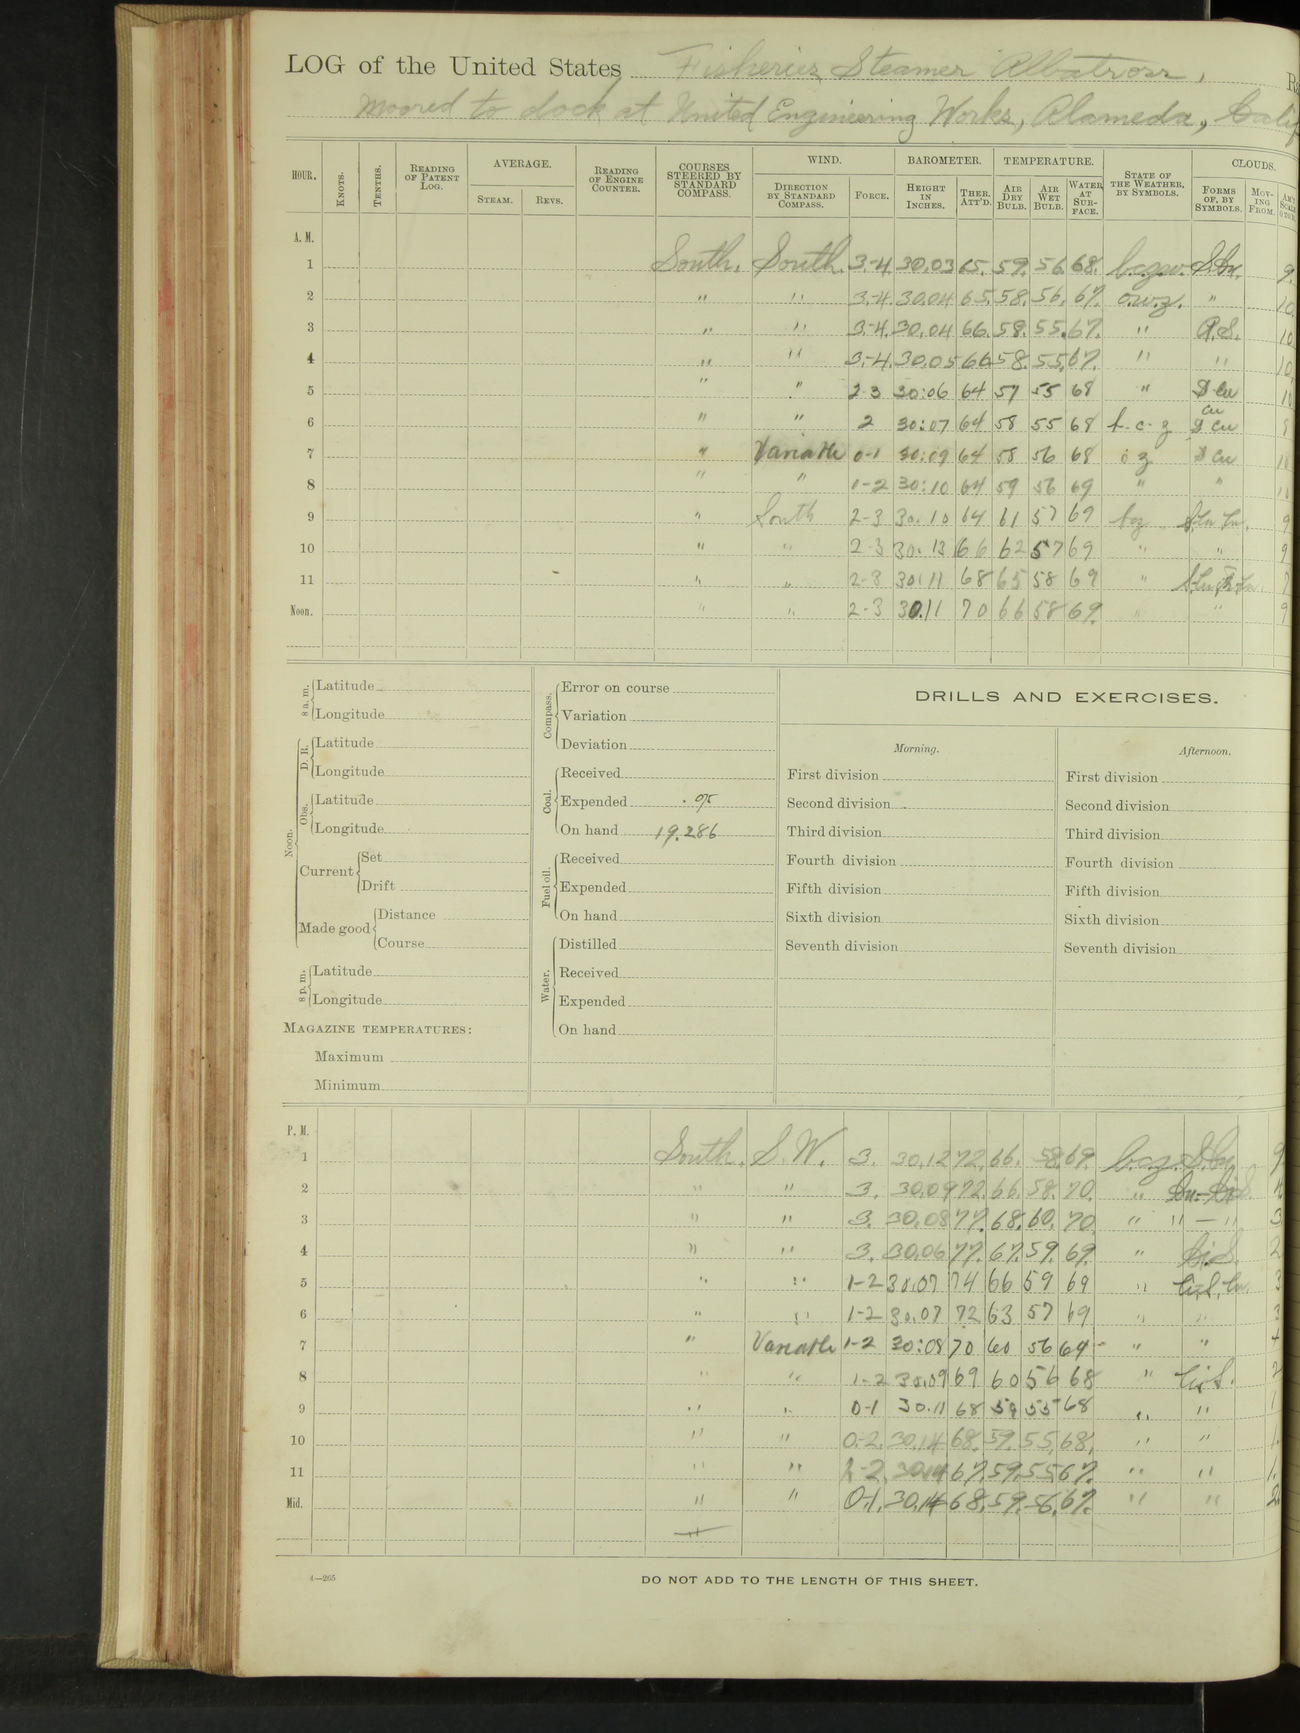 LOG of the United States Fisheries Steamer Albatross,
Moored to dock at United Engineering Works, Alameda, Calif
HOUR. KNOTS. TENTHS. READING OF PATENT LOG. AVERAGE. STEAM. REVS. READING OF ENGINE COUNTER. COURSES STEERED BY STANDARD COMPASS. WIND. DIRECTION BY STANDARD COMPASS. FORCE. BAROMETER. HEIGHT IN INCHES. THER. ATT'D. TEMPERATURE. AIR DRY BULB. AIR WET BULB. WATER AT SURFACE. STATE OF THE WEATHER, BY SYMBOLS. CLOUDS. FORMS OF, BY SYMBOLS. MOVING FROM.
A. M.
1 South. South. 3-4 30.03 65. 59. 56. 68. b.c.z.w. S.Cu. 9.
2 " " 3-4. 30.04 65. 58. 56. 67. o.w.z. " 10.
3 " " 3-4. 30.04 66. 58. 55. 67. " A.S. 10
4 " " 3-4. 30.05 66 58. 55. 67. " " 10.
5 " " 2-3 30:06 64 57 55 68 " S Cu 10
6 " " 2 30:07 64 58 55 68 b-c-z Cu S Cu 8
7 " Variable 0-1 30:09 64 58 56 68 o z S Cu 10
8 " " 1-2 30:10 64 59 56 69 " " 10
9 " South 2-3 30.10 64 61 57 69 9
10 " " 2-3 30.13 66 62 57 69 " " 9
11 " " 2-3 30.11 68 65 58 69 "
Noon. " " 2-3 30.11 70 66 58 69. " " 9
8 a. m. Latitude
Longitude
Noon. D. R. Latitude
Longitude
Obs. Latitude
Longitude
Current Set
Drift
Made good Distance
Course
8 p. m. Latitude
Longitude
MAGAZINE TEMPERATURES:
Maximum
Minimum
Compass. Error on course
Variation
Deviation
Coal. Received
Expended .95
On hand 19.286
Fuel oil. Received
Expended
On hand
Water. Distilled
Received
Expended
On hand
DRILLS AND EXERCISES.
Morning.
First division
Second division
Third division
Fourth division
Fifth division
Sixth division
Seventh division
Afternoon.
First division
Second division
Third division
Fourth division
Fifth division
Sixth division
Seventh division
P. M.
1 South. S.W. 3. 30.12 72. 66. 58. 69. b.c.z. S.Cu. 9
2 " " 3. 30.09 72. 66. 58. 70. " Cu.-Ci.S. 4
3 " " 3. 30.08 77. 68. 60. 70. " " — " 3
4 " " 3. 30.06 77. 67. 59. 69. " Ci.S. 2
5 " " 1-2 30.07 74 66 59 69 " Ci.S, Cu. 3
6 " " 1-2 30.07 72 63 57 69 " " 3
7 " Variable 1-2 30:08 70 60 56 69 " " 4
8 " " 1-2 30.09 69 60 56 68 " Ci S. 2
9 " " 0-1 30.11 68 59 55 68 " " 1
10 " " 0-2. 30.14 68. 59. 55. 68. " " 1.
11 " " 1-2. 30.14 67. 59. 55. 67. " " 1.
Mid. " " 0-1. 30.14 68. 59. 56. 67. " " 2.
"
4—265
DO NOT ADD TO THE LENGTH OF THIS SHEET.